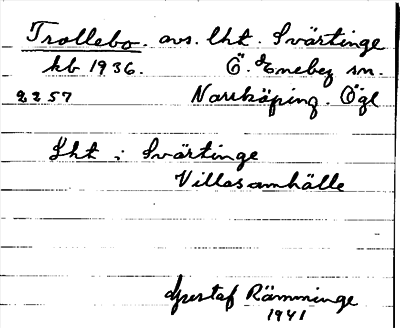 Trollebo. avs. lht. Svärtinge
kb 1936. Ö. Eneby sn.
2257 Norrköping. Ögl
Lht i Svärtinge
Villasamhälle
Gustaf Rämminge
1941